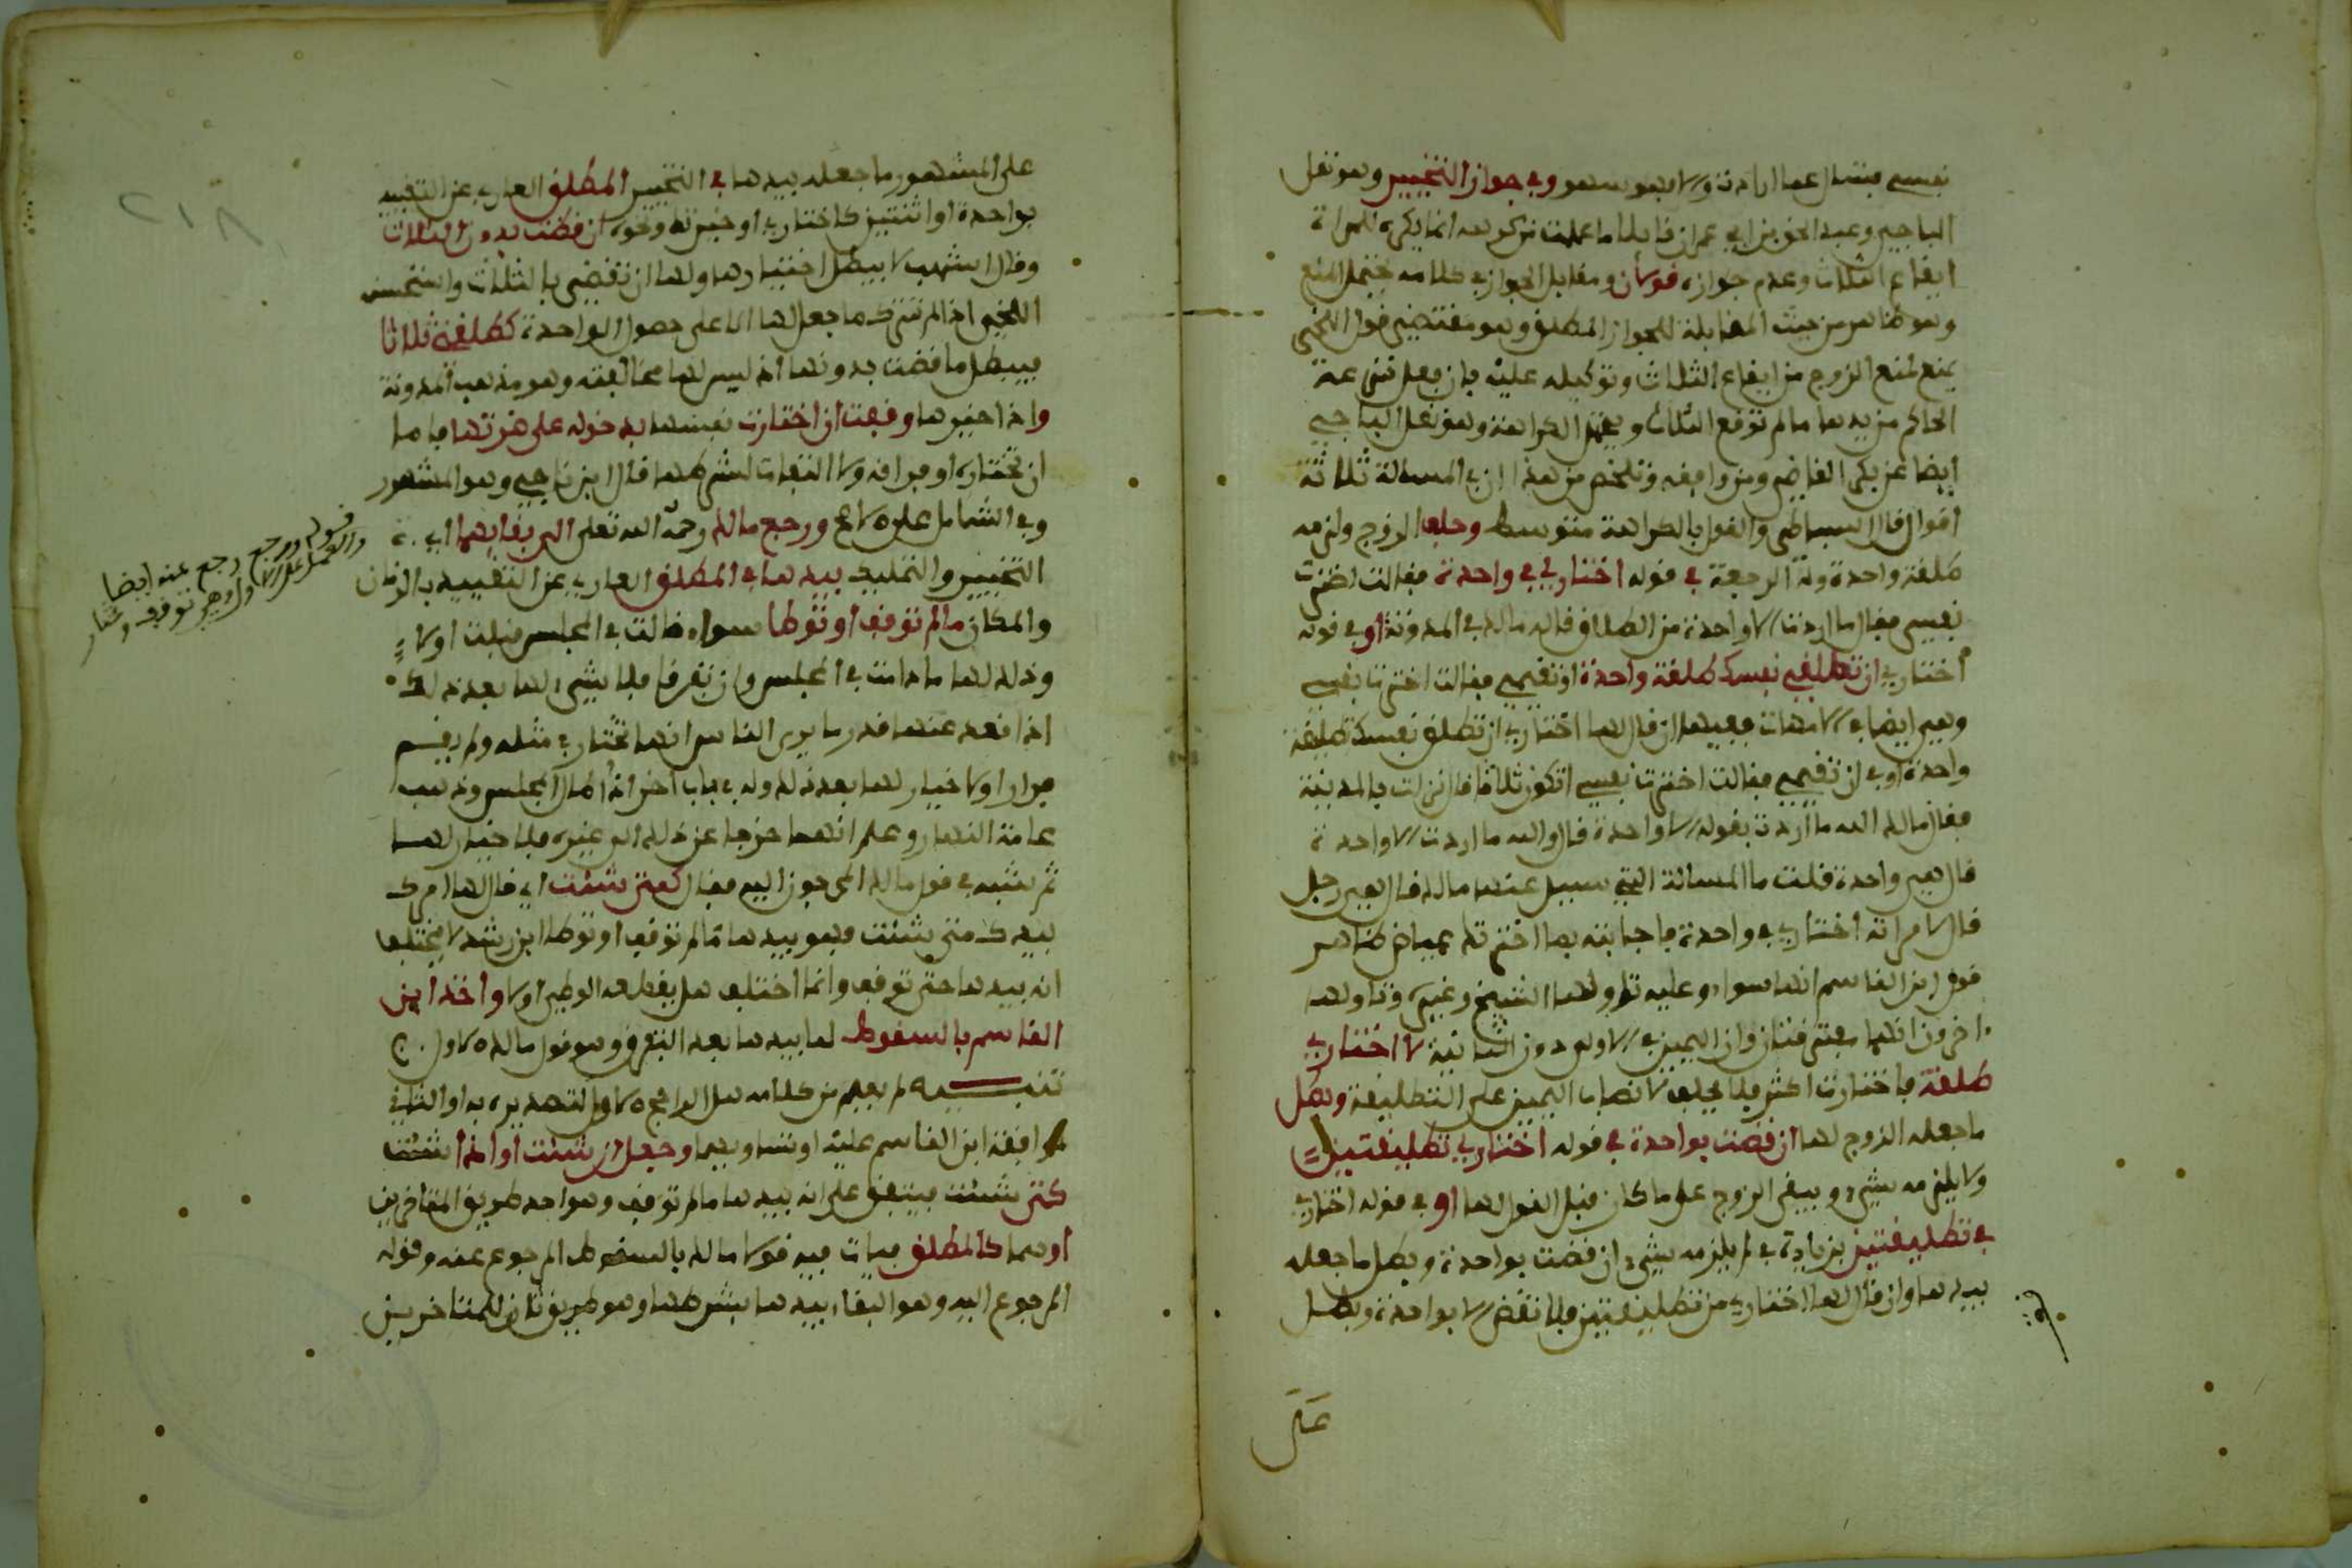 نفسي فيسأل عما ارادت ولا فهو سهو وفي جواز التخيير وهو نقل
الباجي وعبد الحق بن ابي عمران قايلا ما علمت من كرهه انما يكره للمراة
ايقاع الثلاث وعدم جوازه قولان ومقابل الجواز في كلامه يحتمل المنع
وهو ظاهر من حيث المقابلة للجواز المطلق وهو مقتضى قول اللخمي
يمنع لمنع الزوج من ايقاع الثلاث وتوكيله عليه فإن فعل انتزعه
الحاكم من يدها ما لم توقع الثلاث ويحتمل الكراهة وهو نقل الباجي
ايضا عن بكر القاضي ومن وافقه وتلخص من هذا ان في المسالة ثلاثة
اقوال قال البساطي والقول بالكراهة متوسط وحلف الزوج ولزمه
طلقة واحدة وله الرجعة في قوله اختاري في واحدة فقالت اخترت
نفسي فقال ما اردت الا واحدة من الطلاق قاله مالك في المدونة او في قوله
اختاري ان تطلقي نفسك طلقة واحدة او تقيمي فقالت اخترت نفسي
وهي ايضا في الامهات ففيها ان قال لها اختاري ان تطلق نفسك تطليقة
واحدة او في ان تقيمي فقالت اخترت نفسي اتكون ثلاثا قال نزلت بالمدينة
فقال مالك الله ما اردت بقولك الا واحدة قال والله ما اردت الا واحدة
قال هي واحدة قلت ما المسالة التي سيل عنها مالك قال هي رجل
قال لامراته اختاري في واحدة فاجابته بما اخبرتك عياض ظاهر
قول ابن القاسم انهما سوا وعليه تاولها الشيخ وغيره وتاولها
اخرون انهما مفترقتان وان اليمين في الاولى دون الثانية لا اختاري
طلقة فاختارت اكثر فلا يحلف لانصباب اليمين على التطليقة وبطل
ما جعله الزوج لها ان قضت بواحدة في قوله اختاري تطليقتين
ولا يلزمه شيء ويبقى الزوج على ما كان قبل القول لها او في قوله اختاري
في تطليقتين بزيادة في لم يلزمه شيء ان قضت بواحدة وبطل ما جعله
بيدها وان قال لها اختاري من تطليقتين فلا تقض الا بواحدة وبطل
على
على المشهور ما جعله بيدها في التخيير المطلق العاري عن التقييد
بواحدة او اثنتين كاختاري او خيرتك ونحوه ان قضت بدون الثلاث
وقال اشهب لا يبطل اختيارها ولها ان تقضي بالثلاث واستحسنه
اللخمي اذ لم تترك ما جعل لها الا على حصول الواحدة كطلقي ثلاثا
فيبطل ما قضت بدونها اذ ليس لها مخالفته وهو مذهب المدونة
واذا خيرها وقفت ان اختارت نفسها بدخوله على ضرتها فاما
ان تختاره او فراقه ولا التفات لشرطها قال ابن ناجي وهو المشهور
وفي الشامل على الاصح ورجع مالك رحمه الله تعلى الى بقايهما اي
التخيير والتمليك بيدها في المطلق العاري عن التقييد بالزمان
والمكان ما لم توقف او توطا سواء قالت في المجلس قبلت او لا
وذلك لها ما دامت في المجلس وان تفرقا فلا شيء لها بعد ذلك
اذا قعد عنها قدر ما يرى الناس انها تختار في مثله ولم يقم
فرارا ولا خيار لها بعد ذلك وله في باب اخر انه ان طال المجلس وذهب
عامة النهار وعلم انهما خرجا عن ذلك الى غيره فلا خيار لها
ثم شبه في قول مالك المرجوع اليه فقال كمتى شئت اي قال لها امرك
بيدك متى شئت فهو بيدها ما لم توقف او توطا ابن رشد لا يختلف
انه بيدها حتى توقف وانما اختلف هل يقطعه الوطي او لا واخذ ابن
القاسم بالسقوط لما بيدها بعد التفرق وهو قول مالك الاول
تنبيه لم يعلم من كلامه هل الراجح الاول لتصديره به او الثاني
لموافقة ابن القاسم عليه او تساويهما وجعل ان شئت او اذا شئت
كمتى شئت فيتفق على انه بيدها ما لم توقف وهو احد طريق المتاخرين
او هما كالمطلق فيات فيه قولا مالك بالسقوط المرجوع عنه وقوله
المرجوع اليه وهو البقاء بيدها بشرطها وهو طريق ثان للمتاخرين
قوله ورجع رجع عنه ايضا
والعمل على الاول